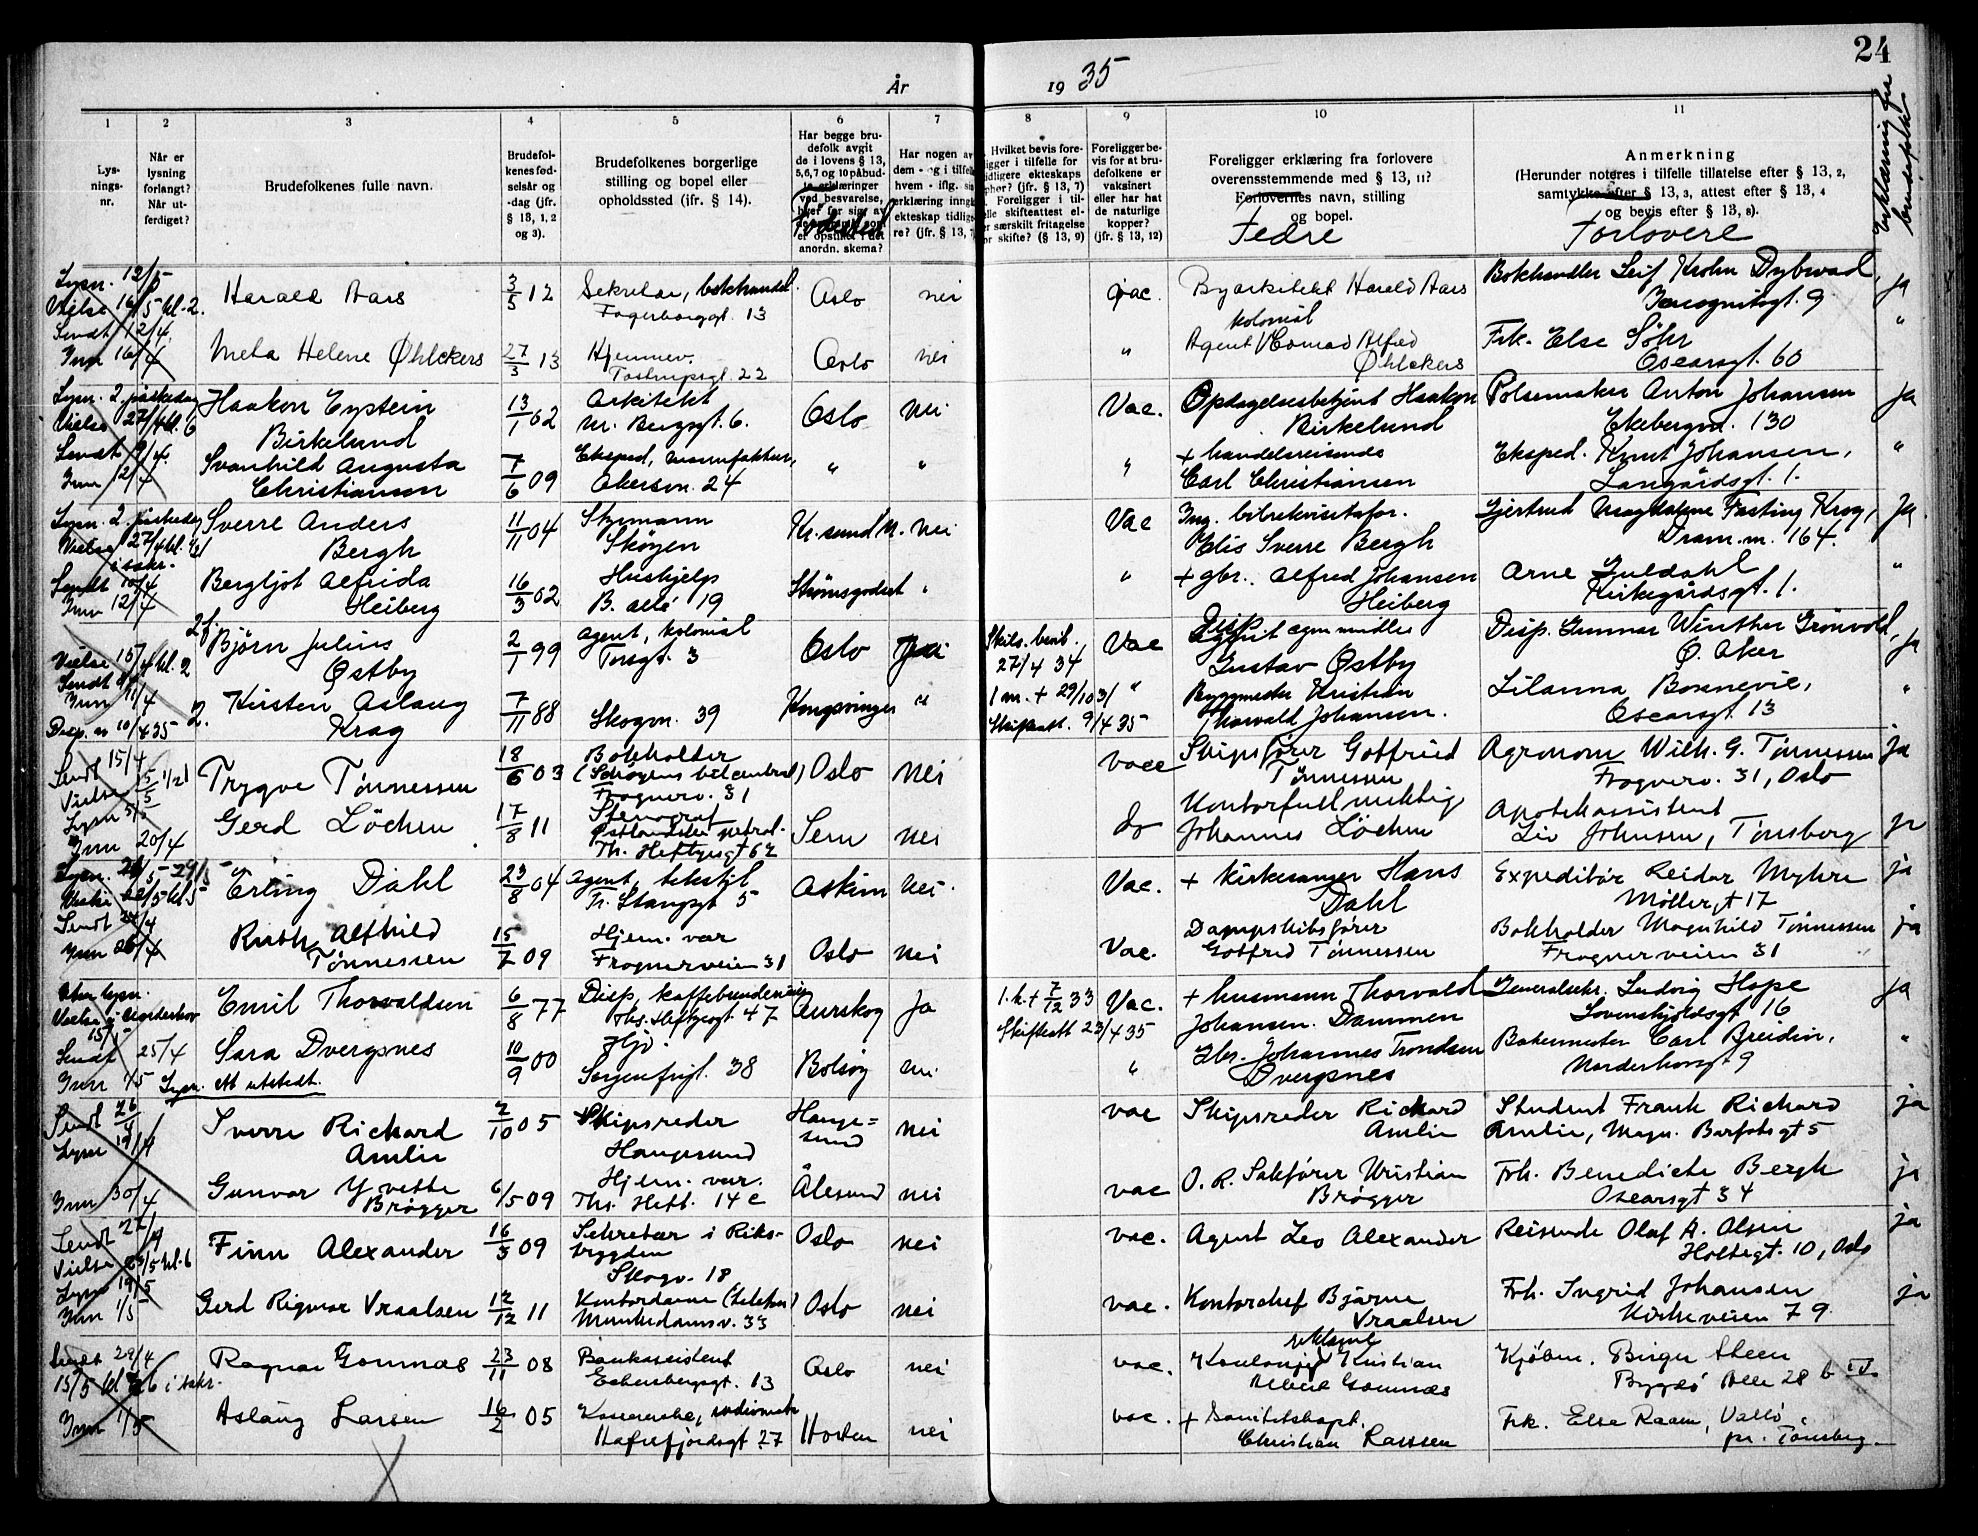 24
År
19 35
Erklæring fra
brudefolk
1
2
3
4
5
6
7
8
9
10
11
Lys-
nings-
nr.
Når er
lysning
forlangt?
Når ut-
ferdiget?
Brudefolkenes fulle navn.
Brudefol-
kenes fød-
selsår og
-dag (jfr.
§ 13, 1, 2
og 3).
Brudefolkenes borgerlige
stilling og bopel eller
opholdssted (ifr. § 14).
Har begge bru-
defolk avgit
de i lovens § 13,
5,6,7 og 10 påbud-
te erklæringer
ved besvarelse,
hver for sig av
er opstillet i det
anordn. skema?
Fødested
Har nogen av
dem - og i tilfelle
hvem - iflg. sin
erklæring inngått
ekteskap tidlige-
re? (jfr. § 13, 7
Hvilket bevis fore-
ligger i tilfelle for
tidligere ekteskaps
ophør? (jfr. § 13, 7)
Foreligger i til-
felle skifteattest el-
er særskilt fritagelse
for skifte? (§ 13, 9)
Foreligger be-
vis for at bru-
defolkene er
vaksinert
eller har hat
de naturlige
kopper?
(jfr. § 13, 12)
Foreligger erklæring fra forlovere
overensstemmende med § 13, 11?
Forlovernes navn, stilling
og bopel.
Fedre
Anmerkning
(Herunder noteres i tilfelle tillatelse efter § 13, 2,
samtykke efter § 13, 3, attest efter § 13, 4
og bevis efter § 13, 8).
Forlovere
Lysn. 12/5
Vielse 16/5 kl. 2.
Sendt 12/4.
Inn 16/4
Harald Aars
3/5 12
Sekretær, bokhandel.
Fagerborggt. 13
Oslo
nei
vac.
Byarkitekt Harald Aars
Bokhandler Leif Krohn Dybwad,
Incognitogt. 9
ja
Meta Helene Øhlckers
27/3 13
Hjemmev.
Tostrupsgt. 22
Oslo
nei
"
kolonial
Agent Conrad Alfred
Øhlckers
Frk. Else Söhr
Oscarsgt. 60
"
Lysn. 2. påskedag
Vielse 27/4 kl. 6
Sendt 9/4.
Inn 12/4
Haakon Eystein
Birkelund
13/1 02
Arkitekt
m. Bergsgt. 6.
Oslo
Nei
Vac.
Opdagelsesbetjent Haakon
Birkelund
Pølsemaker Anton Johansen
Ekebergvn. 130
Ja
Svanhild Augusta
Christiansen
7/6 09
Eksped, manufaktur,
Akersvn. 24
"
"
"
+ handelsreisende
Carl Christiansen
Eksped. Knut Johansen,
Langårdsgt. 1.
"
Lysn. 2. påskedag
Vielse 27/4 kl.
i sakr.
Sendt 10/4
Inn 12/4
Sverre Anders
Bergh
11/11 04
Styrmann
Skøyen
Kr.sund N.
nei
Vac
Ing. bilrekvisitafor.
Elis Sverre Bergh
Gjertrud Magdalene Fasting Krag,
Dram.m. 164.
Ja.
Bergljot Alfrida
Heiberg
16/3 02
Hushjelp
B. allé 19
Strømsgodset
"
"
+ gbr. Alfred Johansen
Heiberg
Arne Guldahl
Kirkegårdsgt. 1.
"
Vielse 15/4 kl. 2
Inn 11/4
Disp. 10/4 35
2 f.
Bjørn Julius
Østby
2/1 99
Agent, kolonial
Torsgt. 3
Oslo
Skils. bevil.
27/4 34
Vac
Gustav Østby
Disp. Gunnar Winther Grönvold,
Ø. Aker
Ja
2.
Kirsten Aslaug
Krag
7/11 88
Skogvn. 39
Kongsvinger
"
1 m. + 29/10 31
Skifteatt. 9/4 35
"
Byggmester Kristian
Thorvald Johansen.
Lilanna Bonnevie,
Oscarsgt. 13
"
Sendt 15/4
Vielse 5/5 1/2 1
Lysn 5/5
Inn 20/4
Trygve Tönnessen
18/6 03
Bokholder
(Schøyens bilcentral)
Frognerv. 31
Oslo
nei
vacc
Skipsfører Gotfried
Tönnessen
Agronom Wilh. G. Tönnessen
Frognerv. 31, Oslo
ja
Gerd Löchen
17/8 11
Stenograf
Østlandske petrol.
Th. Heftyesgt 62
Sem
nei
do
Kontorfullmektig
Johannes Löchen
Apotekassistent
Liv Johnsen, Tönsberg
ja
Sendt 24/4
Inn 26/4
Erling Dahl
23/8 04
Agent, tekstil
Tr. Stangsgt 5
Askim
Nei.
Vac.
+ Kirkesanger Hans
Dahl
Expeditør Reidar Myhre
Møllergt 17
ja
Ruth Alfhild
Tönnessen
15/7 09
Hjem. vær
Frognerveien 31
Oslo
nei
Vac.
Dampskibsfører
Gotfred Tönnessen
Bokholder Magnhild Tönnessen
Frognerveien 31
ja
Uten lysn.
Vielse i Norderhov
15/5
Sendt 25/4
Inn 1/5 Lysn. att utstedt.
Emil Thorvaldsen
6/8 77
Disp, kaffebrenderi
Ths. Heftyesgt 47
Aurskog
Ja
1. k. + 7/12 33
Skifteatt 23/4 35
Vac.
+ husmann Thorvald
Johansen Dammen
Generalsekr. Ludvig Hope
Løvenskjoldsgt 16
ja
Sara Dvergsnes
10/9 00
Hjv.
Sorgenfrigt. 38
Bolsøy
nei
"
Gbr. Johannes Trondsen
Dvergsnes
Bakermester Carl Breidin,
Norderhovsgt 9
"
Sendt 26/4
Inn 30/4
Sverre Richard
Amlie
2/10 05
Skipsreder
Haugesund
Hauge=
sund
nei
vac
Skipsreder Richard
Amlie
Student Frank Richard
Amlie, Magn. Barfotsgt 5
ja
Gunvor Yvette
Brøgger
6/5 09
Hjem. vær.
Ths. Heft. 14 c
Ålesund
nei
vac
O. R. Sakfører Kristian
Brøgger
Frk. Benedicte Bergh
Oscarsgt 34
ja
Sendt 27/4
Lysn 19/5
Inn 1/5
Finn Alexander
16/3 09
Sekretær i Riks-
trygden
Skogv. 18
Oslo
nei
vac.
Agent Leo Alexander
Reisende Olaf A. Olsen
Holtegt. 10, Oslo
ja
Gerd Rigmor Vraalsen
12/12 11
Kontordame (telefon)
Munkedamsv. 33
Oslo
nei
vac.
Kontorchef Bjarne
Vraalsen
Frk. Ingrid Johansen
Kirkeveien 79.
ja
Sendt 29/4
15/5 kl 6 i sakr.
Inn 1/5
Ragnar Gomnæs
23/11 08
Bankassistent
Eckersbergsgt. 13
Oslo
nei
vac.
reklame
Kristian
Gomnæs
Kjøbm. Birger Steen
Bygdø Alle 28 b
Aslaug Larsen
16/2 05
Kassererske,
Hafrsfjordsgt 27
Horten
nei
vac.
+ Sanitetskapt.
Christian Larssen
Frk. Else Raam, Vallø
pr. Tönsberg.